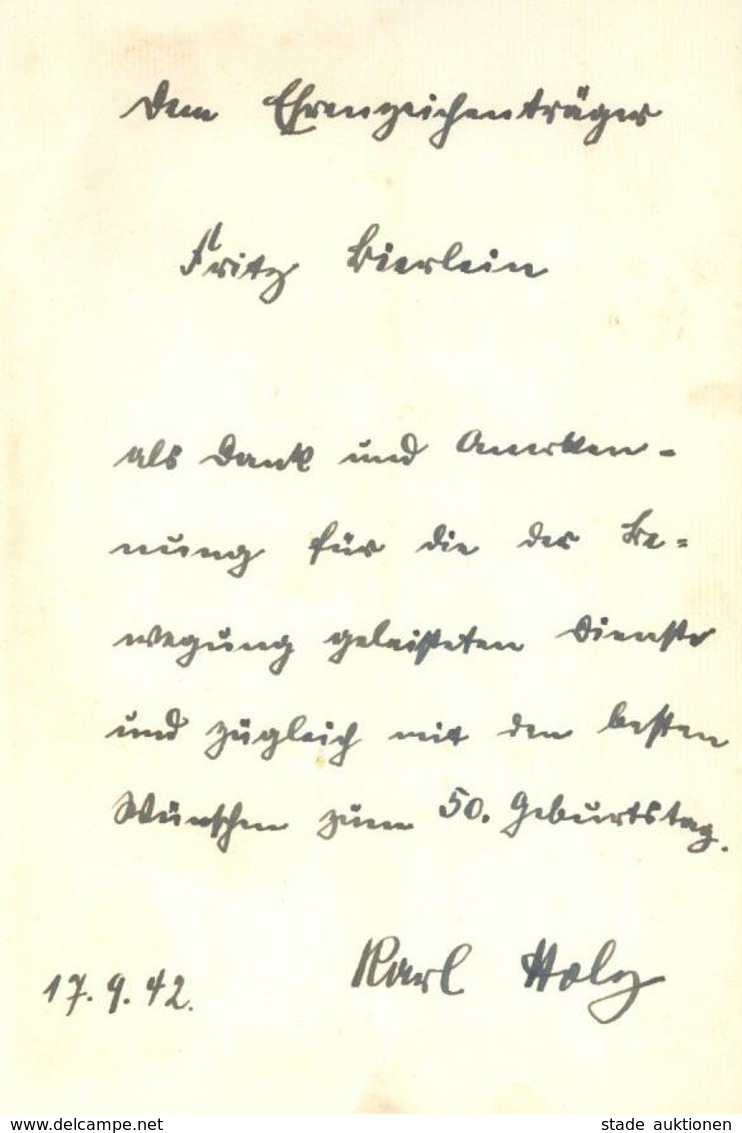 Dem Ehrenzeichenträger
Fritz Bierlein
als Dank und Anerken-
nung für die der Be-
wegung geleisteten Dienste
und zugleich mit den besten
Wünschen zum 50. Geburtstag.
Karl Holz
17.9.42.
www.delcampe.net
stade auktionen